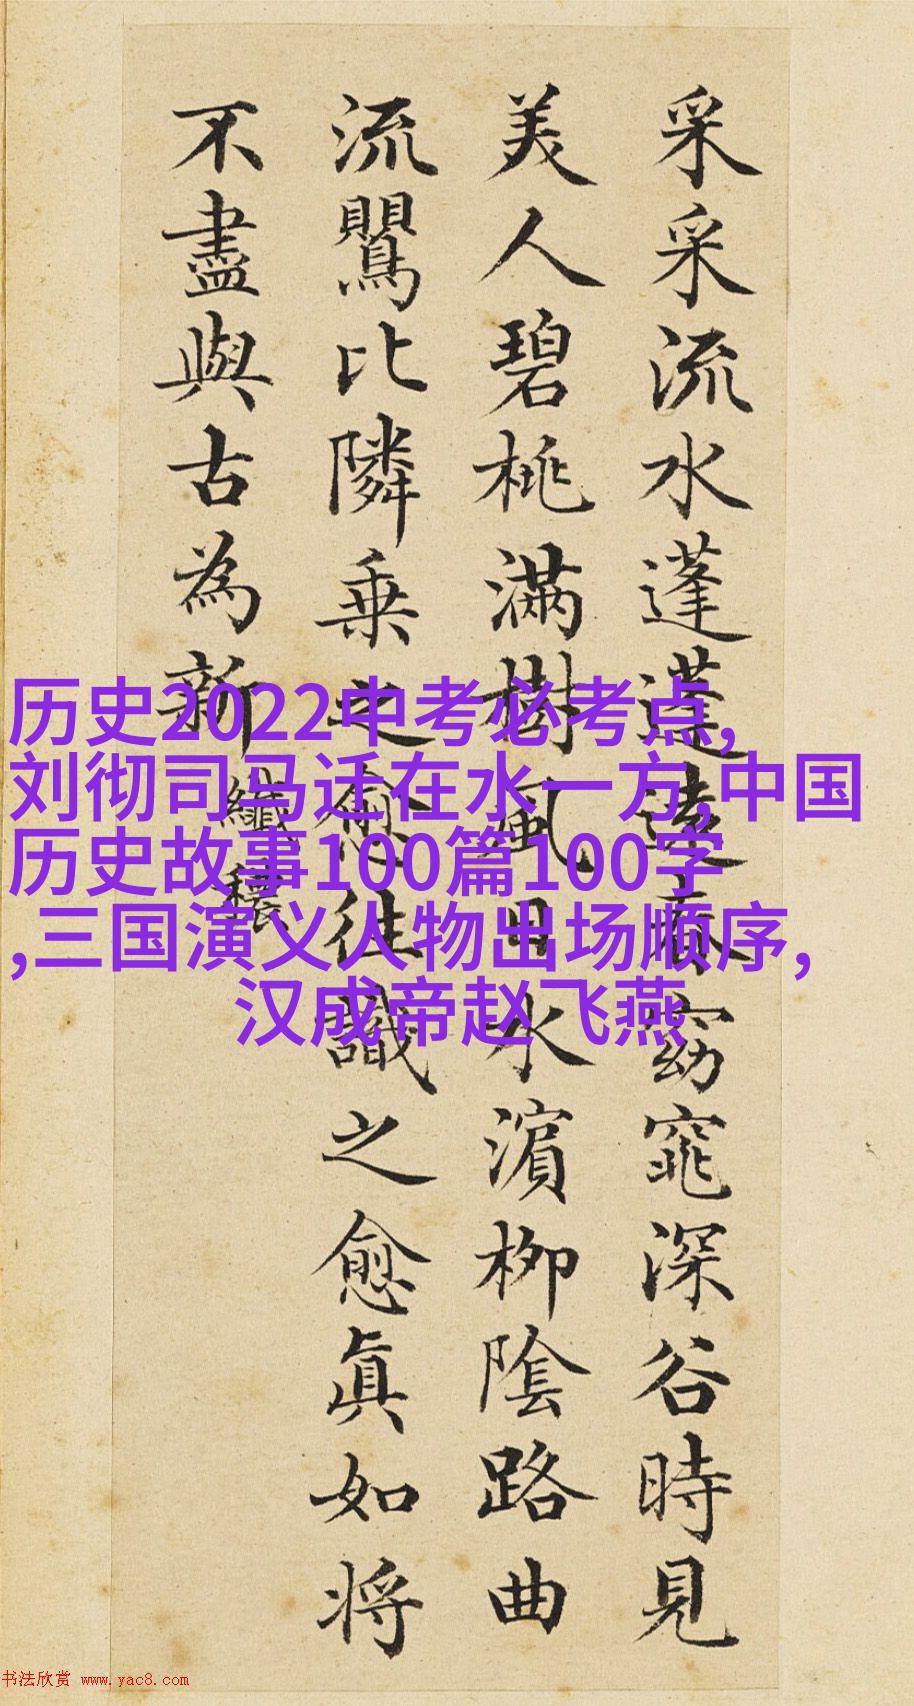 采采流水蓬蓬遠春窈窕深谷時見
美人碧桃滿樹風日水濱柳陰路曲
流鸎比隣乗之愈往識之愈眞如将
不盡與古為新
纖穠
历史2022中考必考点,
刘彻司马迁在水一方,中国
历史故事100篇100字
,三国演义人物出场顺序,
汉成帝赵飞燕
书法欣赏 www.yac8.com